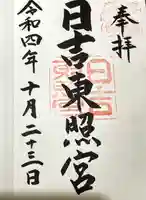 奉拝
日吉東照宮
令和四年十月二十三日